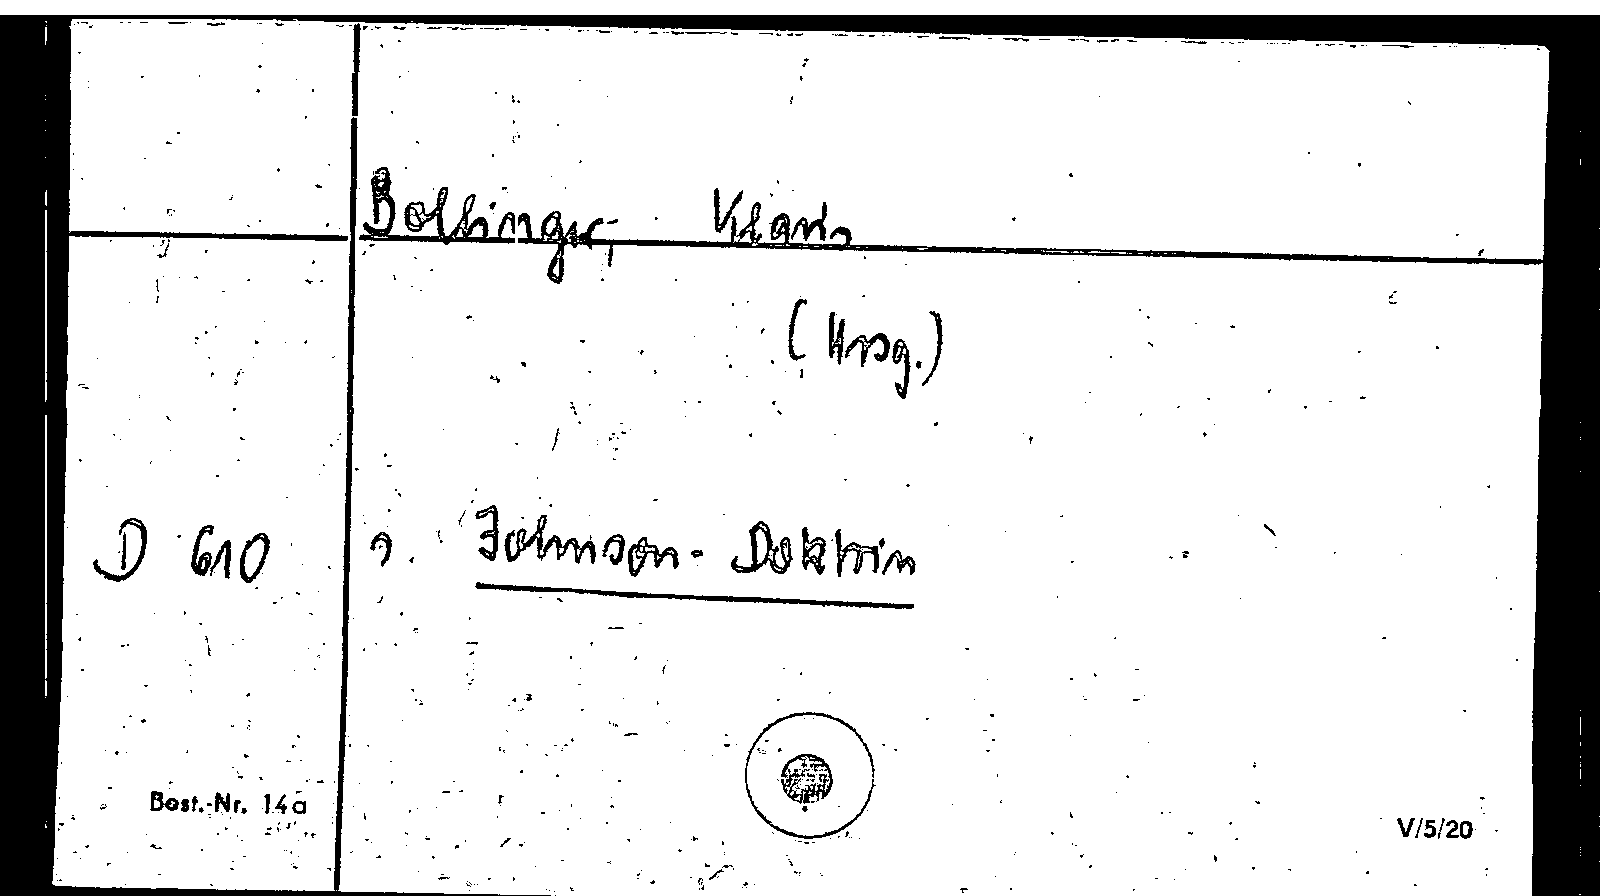 Bollinger, Klaus
(Hrsg.)
D 610 s. Johnson-Doktrin
Best.-Nr. 14a
V/5/20